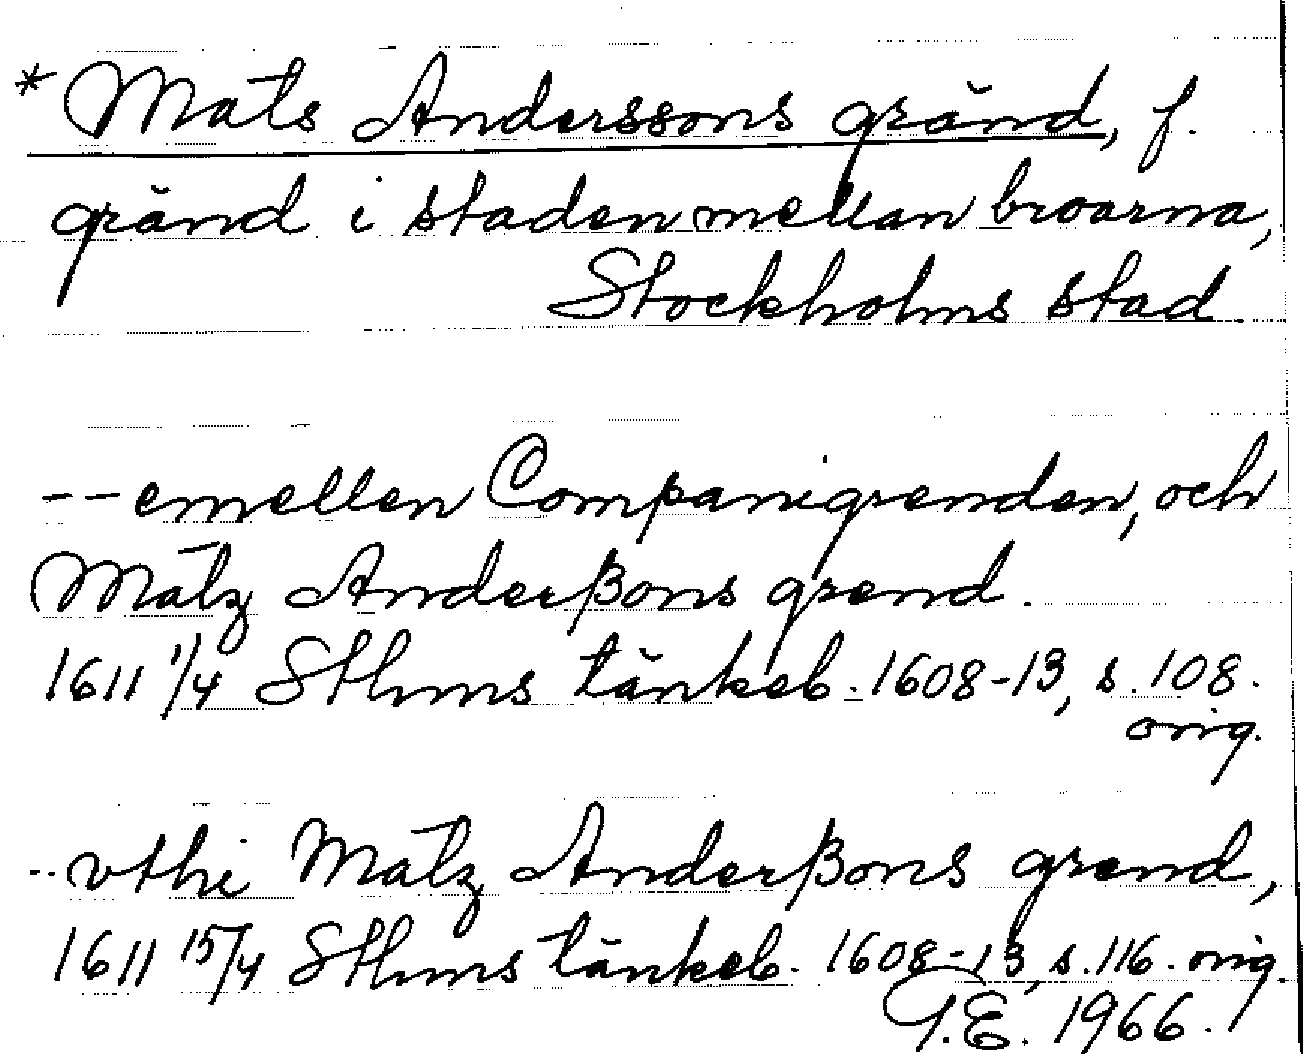 * Mats Anderssons gränd, f.
gränd i staden mellan broarna,
Stockholms stad.
-- emellen Companigrenden, och
Matz Anderßons grend.
1611 1/4 Sthms tänkeb. 1608-13, s. 108.
orig.
.. vthi Matz Anderßons grend,
1611 15/4 Sthms tänkeb. 1608-13, s. 116. orig.
G.E. 1966.